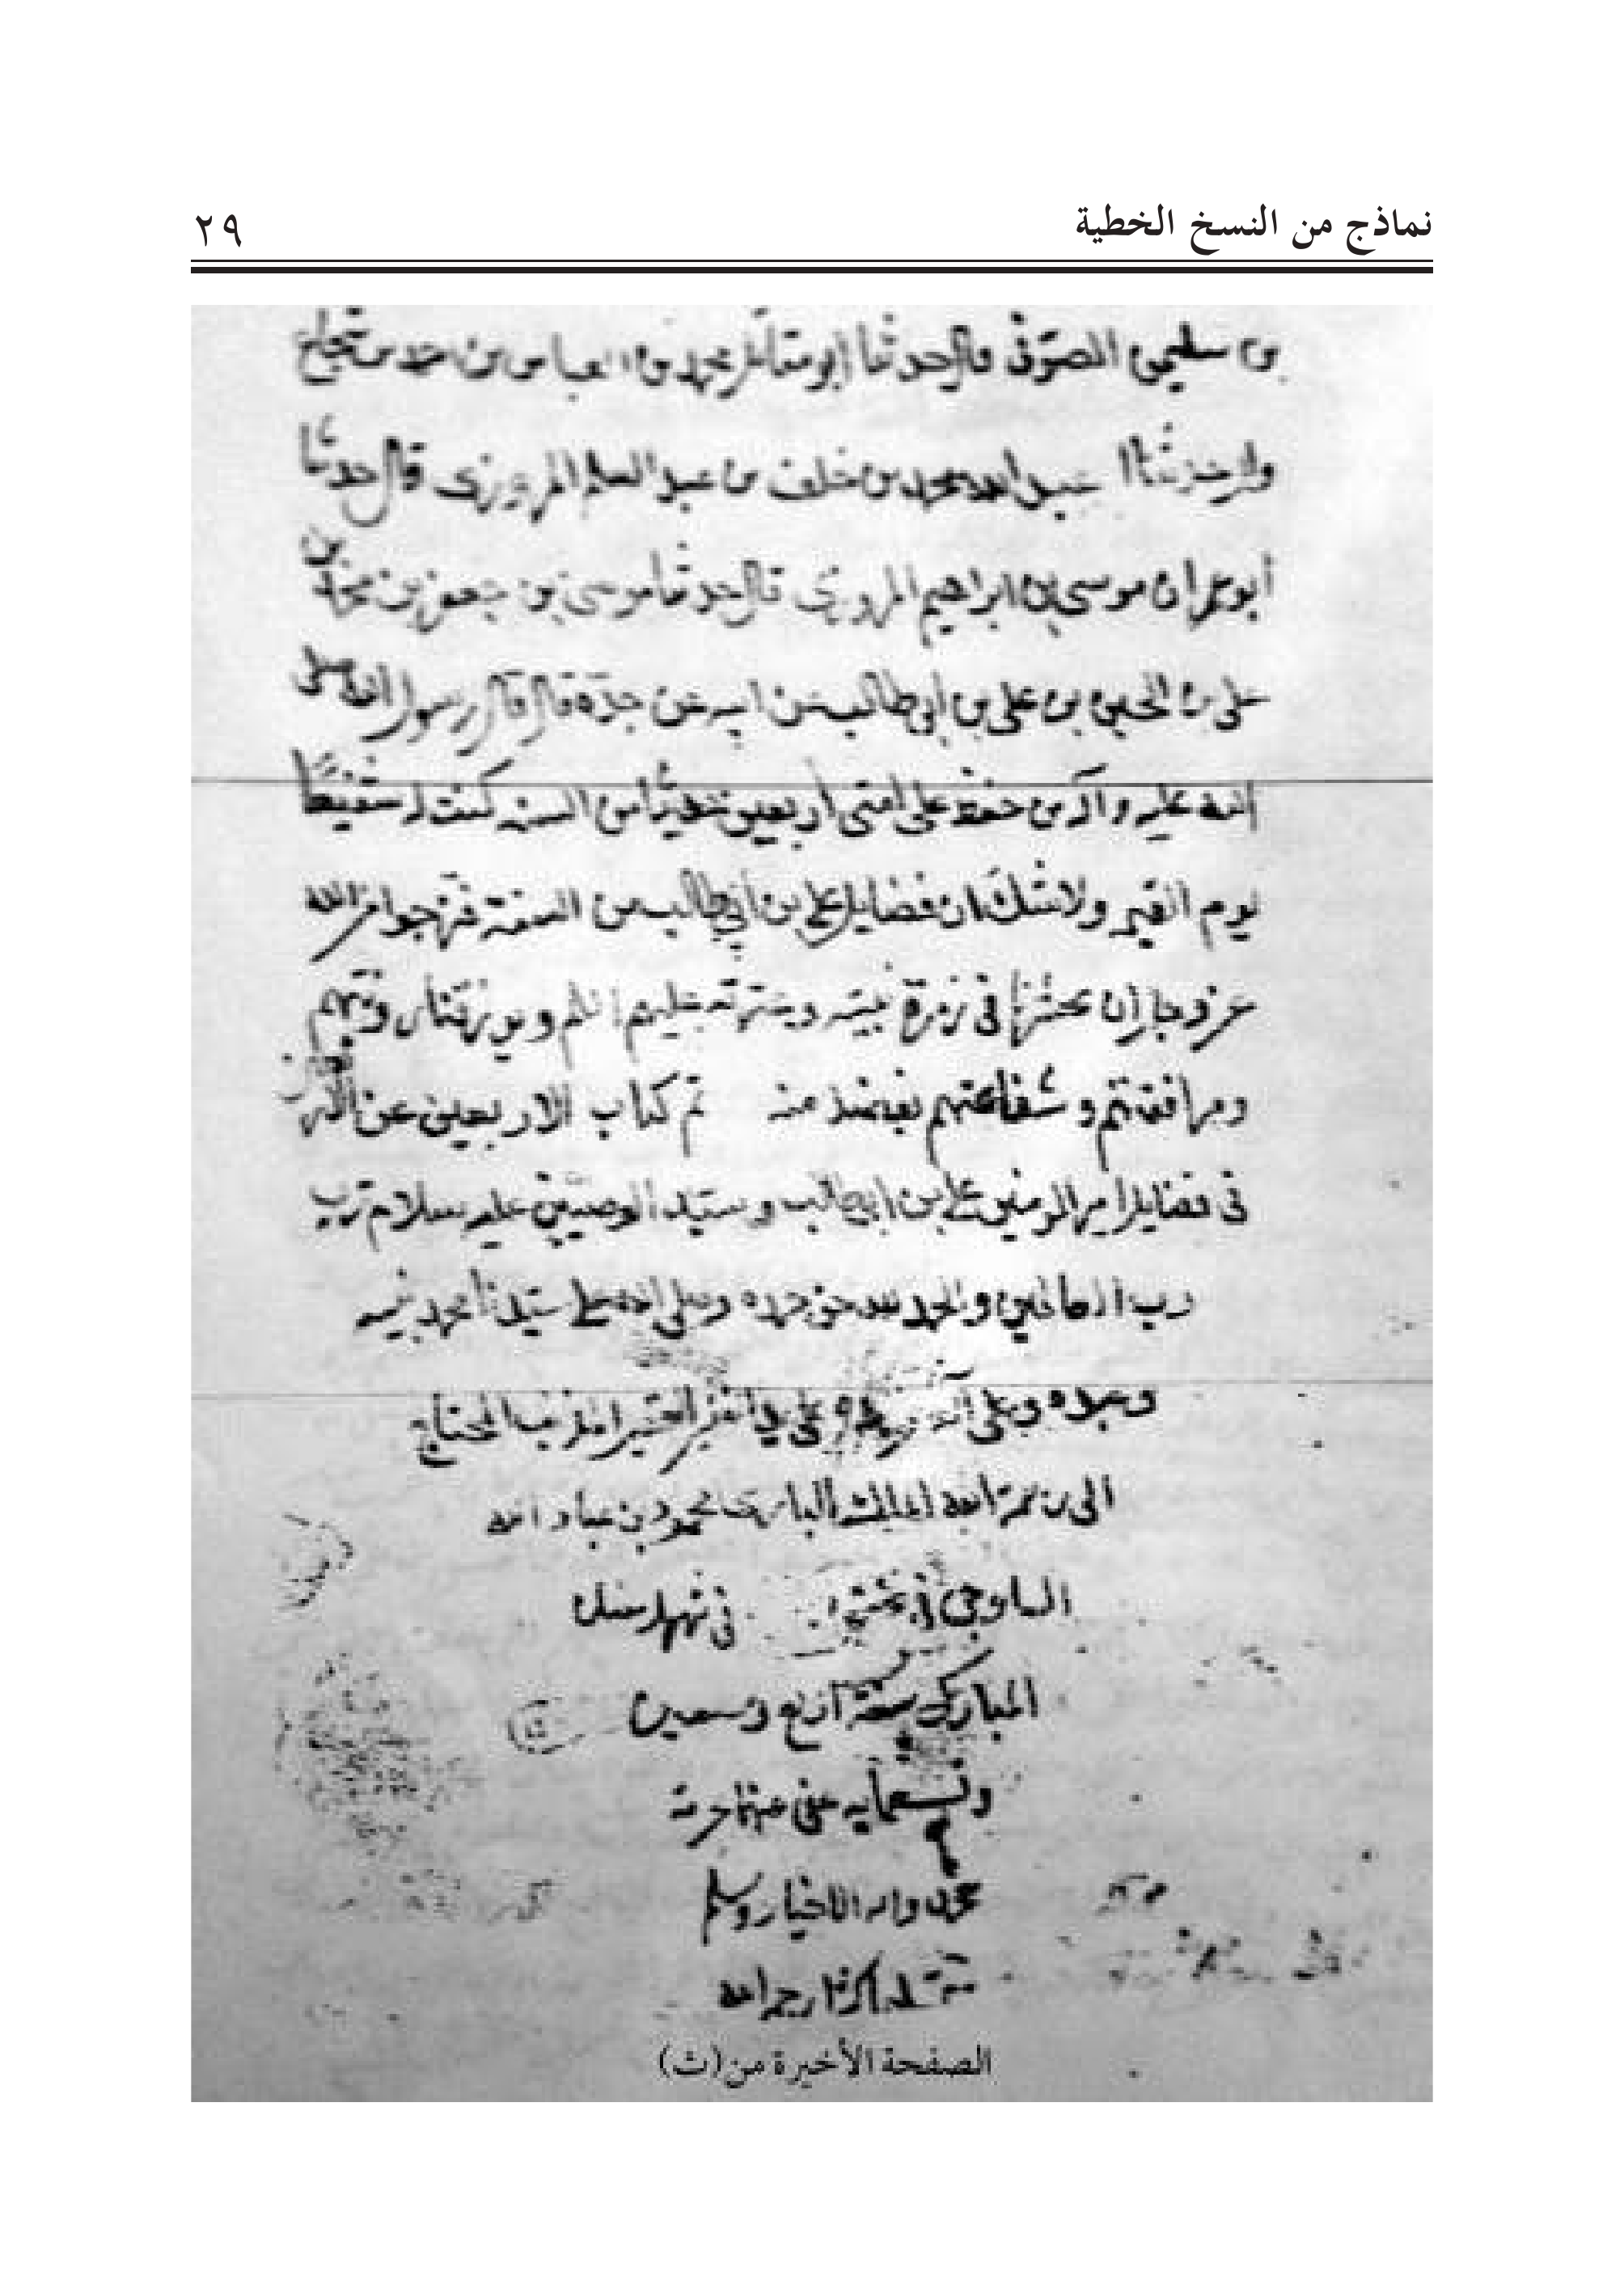 نماذج من النسخ الخطية
٢٩
قال حدثنا محمد بن العباس بن
محمد بن خلف بن عبد السلم المروزى قال حدثنا
أبو عمران موسى بن ابراهيم المروزى قال حدثنا موسى بن جعفر بن محمد بن
على بن الحسين بن على بن أبى طالب عن ابيه عن جده قال قال رسول الله صلى
الله عليه وآله من حفظ على امتى أربعين حديثا من السنه كنت له شفيعا
يوم القيمه ولا شك ان فضايل على بن أبى طالب من السنة فنرجوا من الله
عز وجل أن يحشرنا فى زمرة نبيه وعترته عليهم السلم ويرزقنا رؤيتهم
ومرافقتهم وشفاعتهم بفضله ومنه تم كتاب الاربعين عن
فى فضايل امير المومنين على بن ابى طالب وسيد الوصيين عليه سلام
رب العالمين والحمد لله حق حمده وصلى الله على سيدنا محمد نبيه
وعبده وعلى آله على يد الفقير المذنب المحتاج
الى رحمة الله الملك البارى محمود بن
فى شهر
المبارك سنة أربع وتسعين
وتسعمايه على مهاجره
محمد واله الاخيار وسلم
الصفحة الأخيرة من (ث)